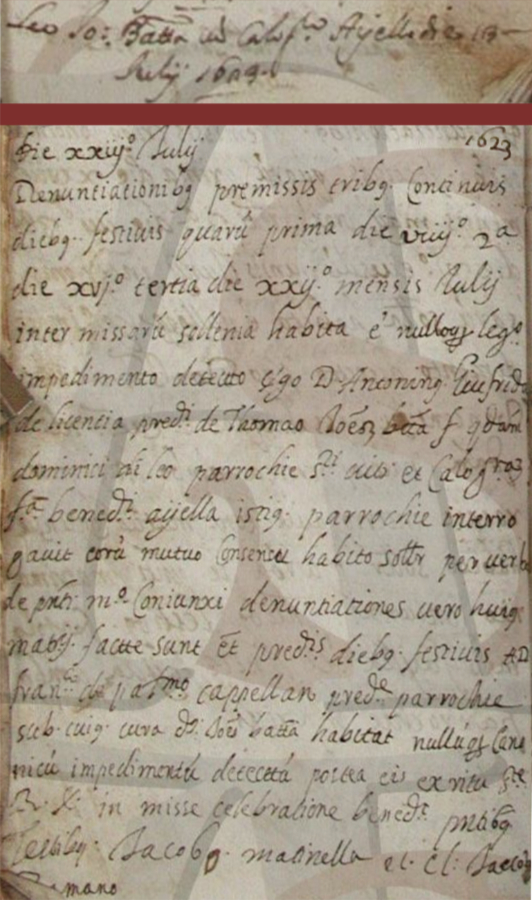 Leo Jo: Batta cu Calog.ra Ayella die 23
Julij 1623
Die xxiij.o Julij 1623
Denuntiationibq premissis tribq Continuis
diebq. festivis quarũ prima die viiij.o 2a
die xvj.o tertia die xxij.o mensis Julij
inter missarũ sollenia habita e nulloq leg.o
impedimento detecto Ego D. Antoninq Giufrid
de licentia pred.ti de Thomao Joẽs batta f. qdam
dominici di leo parrochie S.ti viti et Calog.ra
f.a bened.ta ayella istiq. parrochie interro
gavit corũ mutuo Consensu habito soltr per verb
de pnti m.o Coniunxi denuntiationes vero huiq
matrij. factte sunt Et pred.is diebq festivis AD
fran.co di palmo cappellan pred.e parrochie
sub cuiq. cura d.s Joẽs batta habitat nullũq Cano
nicũ impedimentũ detectũ postea eis ex ritu S.te
R. E. in misse celebratione bened.t pntibq
Testibq. Jacobo matinella et Cl: Jacob
Romano